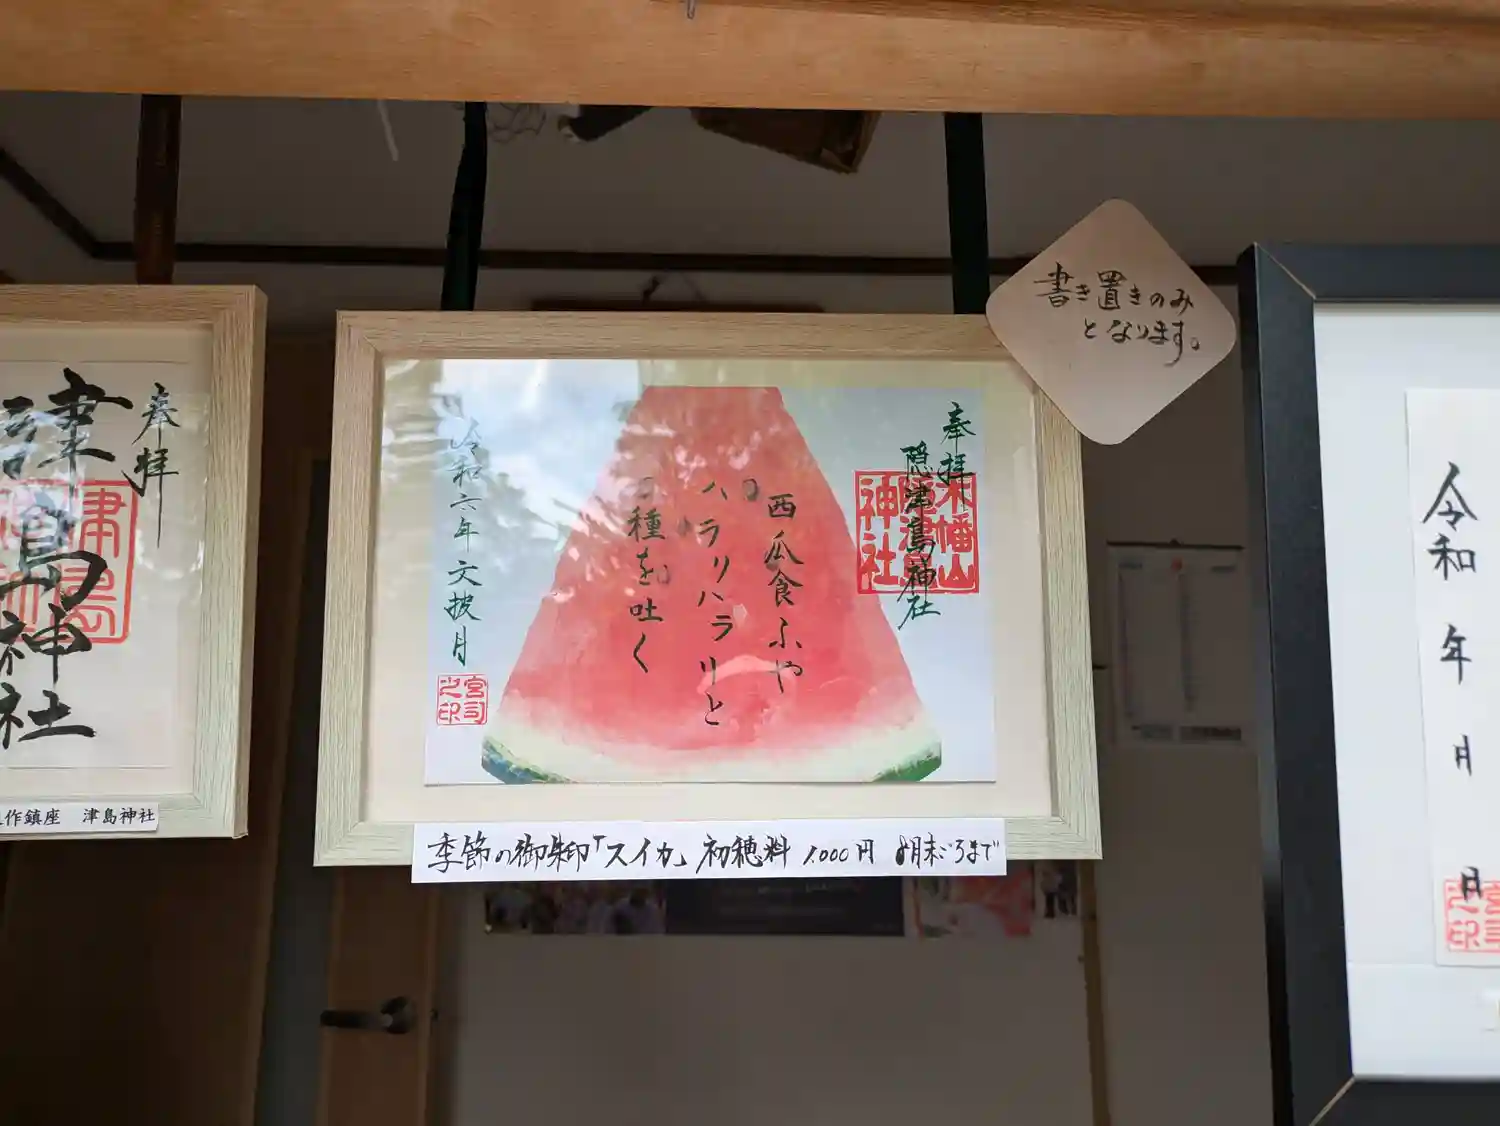 書き置きのみ
となります。
奉拝
隠津島神社
木幡山
隠津島
神社
西瓜食ふや
ハラリハラリと
種を吐く
令和六年文披月
宮司
之印
季節の御朱印「スイカ」 初穂料 1,000円 8月末ごろまで
奉拝
津島神社
作鎮座 津島神社
令和 年 月 日
宮司
之印